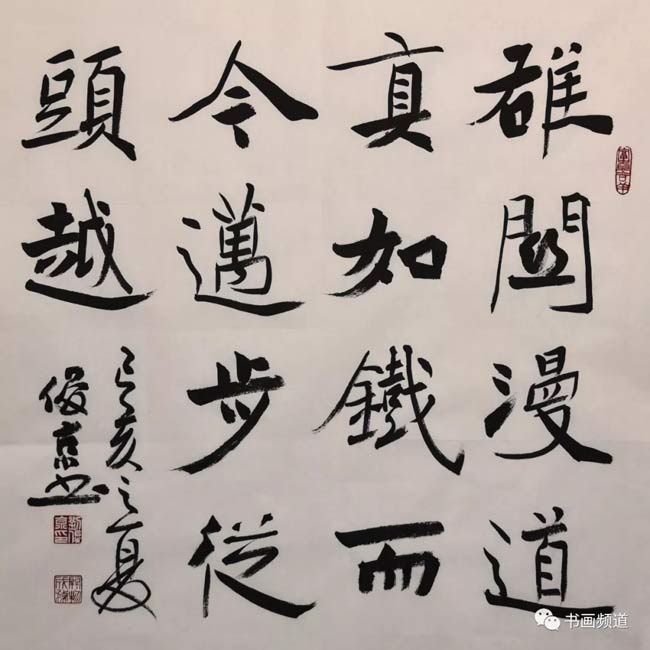 雄關漫道
真如鐵而
今邁步從
頭越
己亥之夏
俊京书
书画频道